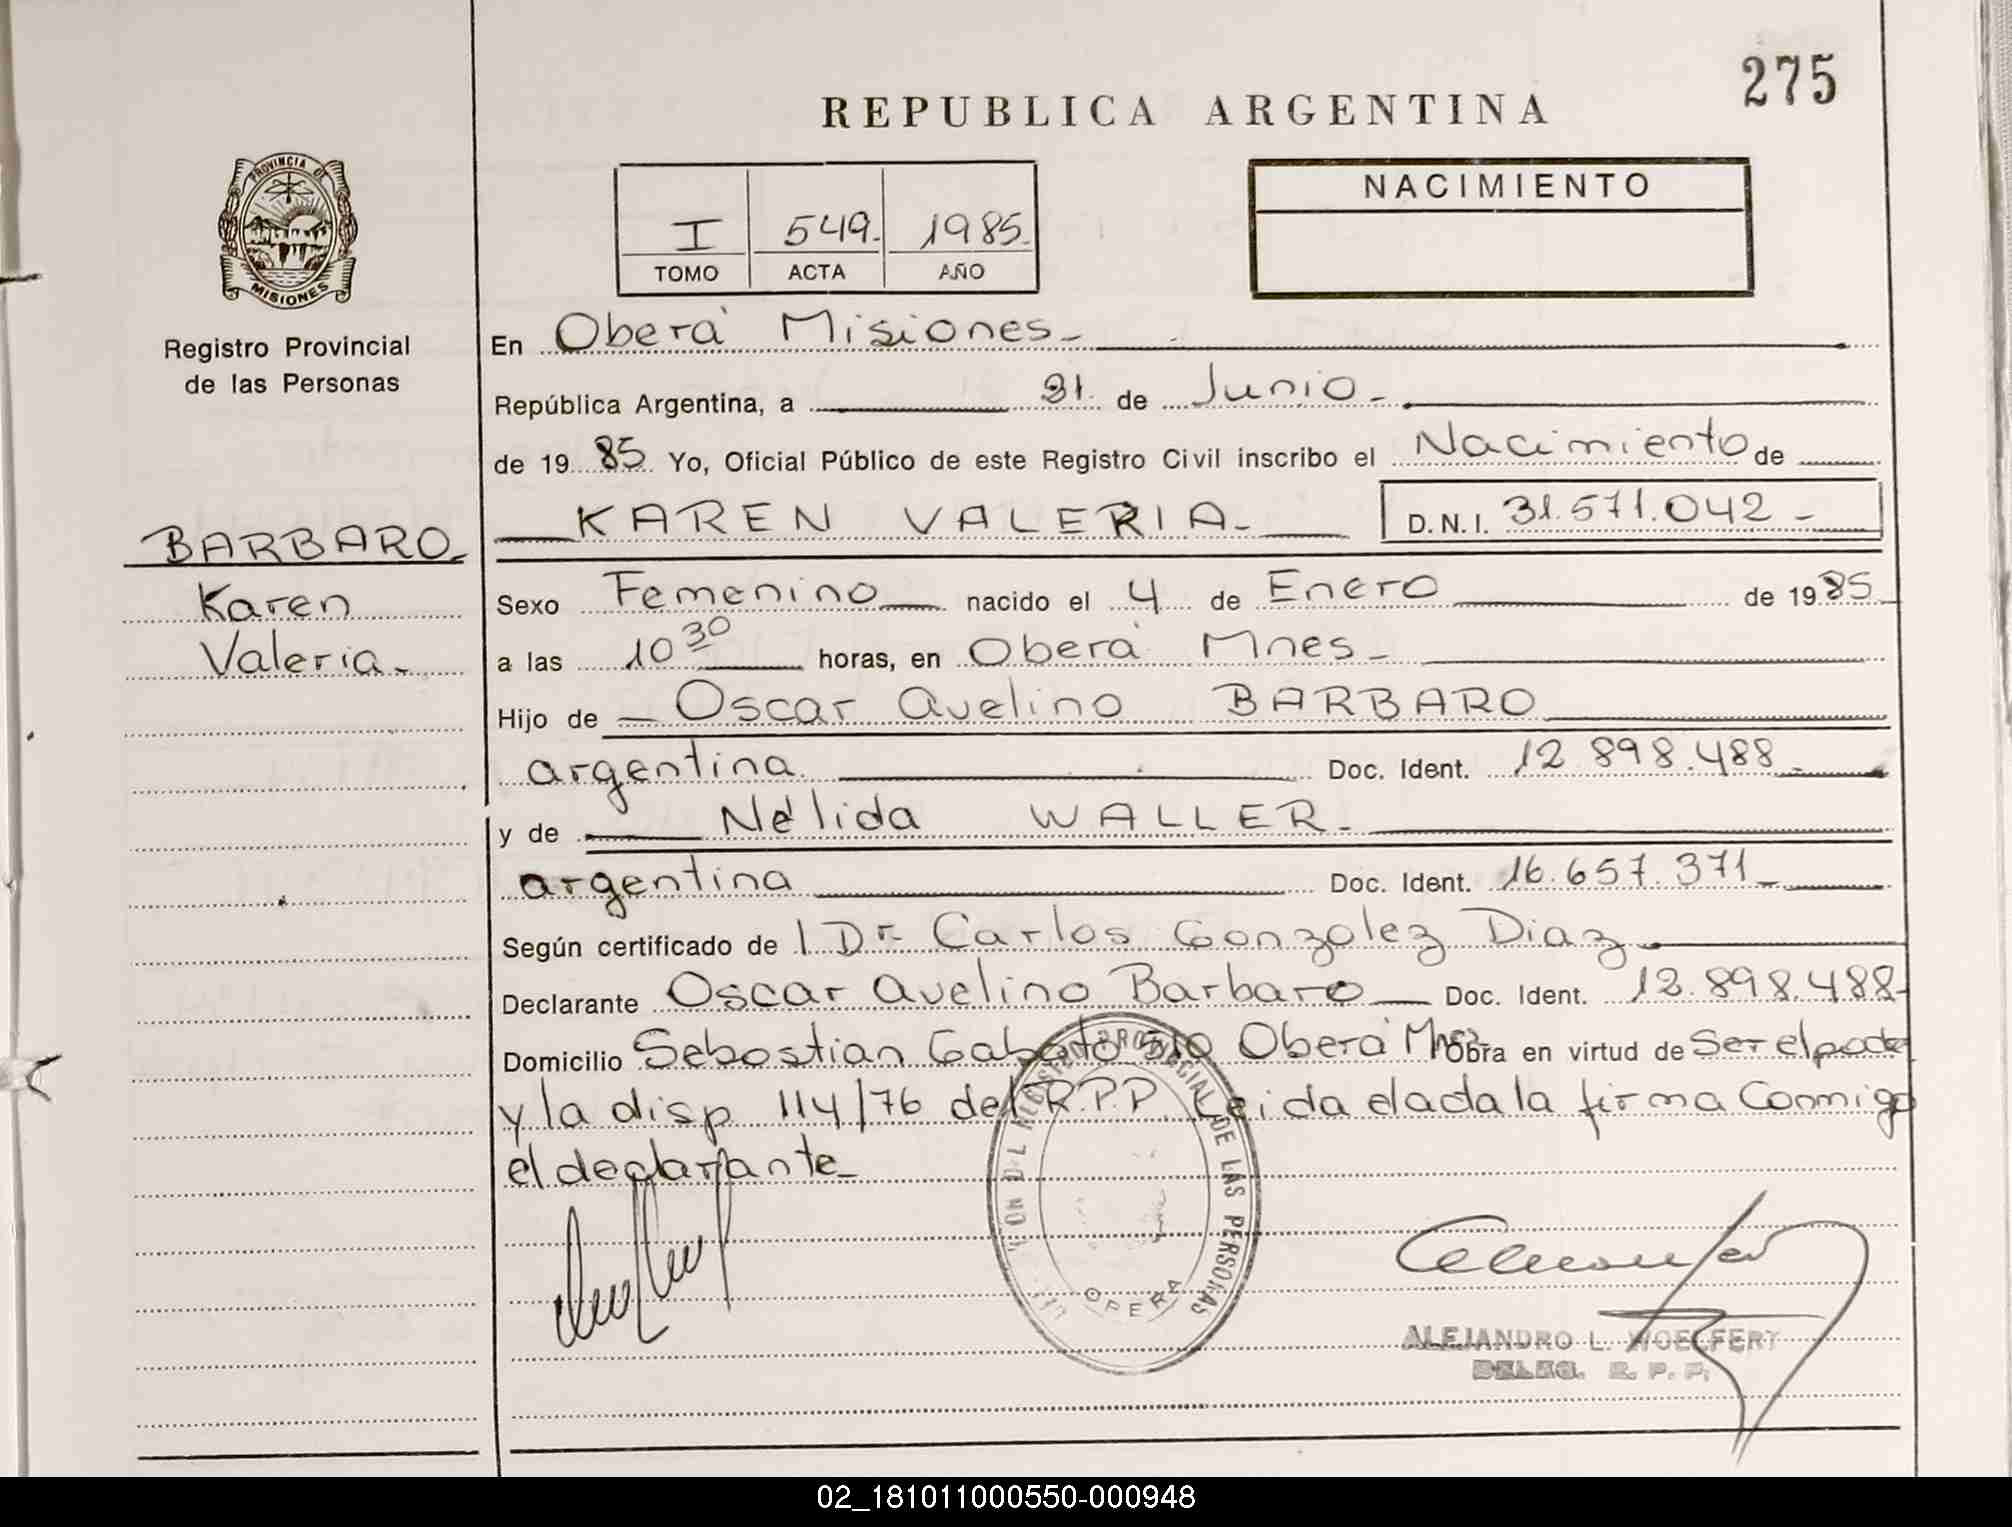 275
REPUBLICA ARGENTINA
PROVINCIA D
MISIONES
Registro Provincial
de las Personas
I 549. 1985.
TOMO ACTA AÑO
NACIMIENTO
En Oberá Misiones-
República Argentina, a 21. de Junio-
de 19 85 Yo, Oficial Público de este Registro Civil inscribo el Nacimiento de
KAREN VALERIA- D.N.I. 31.571.042-
BARBARO-
Karen
Valeria.-
Sexo Femenino nacido el 4 de Enero de 19 85
a las 10 30 horas, en Oberá Mnes-
Hijo de Oscar Avelino BARBARO
argentina. Doc. Ident. 12.898.488
y de Nélida WALLER-
argentina Doc. Ident. 16.657.371-
Según certificado de Dr Carlos Gonzolez Diaz
Declarante Oscar Avelino Barbaro Doc. Ident. 12.898.488-
Domicilio Sebostian Gaboto 510 Oberá Mnes Obra en virtud de Ser el padre
y la disp 114/76 del R.P.P. Leida el acta la firma Conmigo
el declarante-
PROVINCIAL DE LAS PERSONAS
OBERA
ALEJANDRO L. WOELFERT
DELEG. R. P. P.
02_181011000550-000948